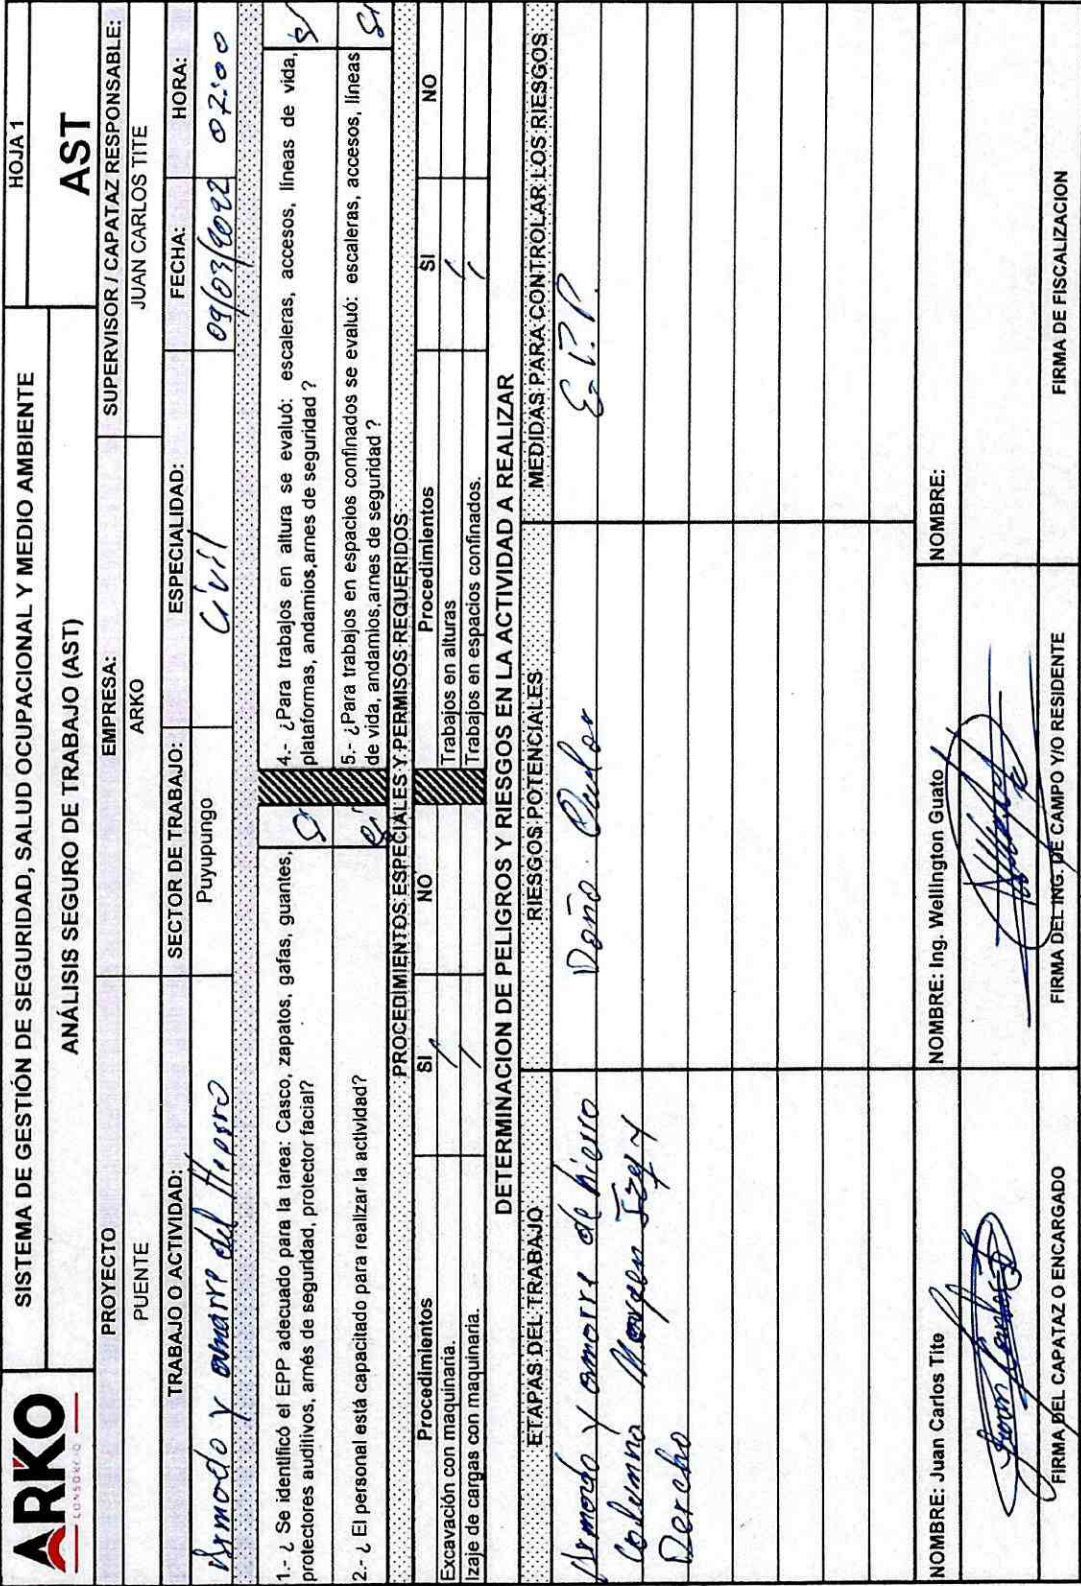 ARKO
CONSORCIO
SISTEMA DE GESTIÓN DE SEGURIDAD, SALUD OCUPACIONAL Y MEDIO AMBIENTE
HOJA 1
ANÁLISIS SEGURO DE TRABAJO (AST)
AST
PROYECTO
EMPRESA:
SUPERVISOR / CAPATAZ RESPONSABLE:
PUENTE
ARKO
JUAN CARLOS TITE
TRABAJO O ACTIVIDAD:
SECTOR DE TRABAJO:
ESPECIALIDAD:
FECHA:
HORA:
Armado y amarre del Hierro
Puyupungo
Civil
09/03/2022
07:00
1.- ¿ Se identificó el EPP adecuado para la tarea: Casco, zapatos, gafas, guantes,
protectores auditivos, arnés de seguridad, protector facial?
Si
4.- ¿Para trabajos en altura se evaluó: escaleras, accesos, líneas de vida,
plataformas, andamios,arnes de seguridad ?
Si
2.- ¿ El personal está capacitado para realizar la actividad?
Si
5.- ¿Para trabajos en espacios confinados se evaluó: escaleras, accesos, líneas
de vida, andamios,arnes de seguridad ?
Si
PROCEDIMIENTOS ESPECIALES Y PERMISOS REQUERIDOS
Procedimientos
SI
NO
Procedimientos
SI
NO
Excavación con maquinaria.
/
Trabajos en alturas
/
Izaje de cargas con maquinaria.
/
Trabajos en espacios confinados.
/
DETERMINACION DE PELIGROS Y RIESGOS EN LA ACTIVIDAD A REALIZAR
ETAPAS DEL TRABAJO
RIESGOS POTENCIALES
MEDIDAS PARA CONTROLAR LOS RIESGOS
Armado y amarre de hierro
Columna Margen Izq y
Derecho
Daño
E.i.P.
NOMBRE: Juan Carlos Tite
NOMBRE: Ing. Wellington Guato
NOMBRE:
FIRMA DEL CAPATAZ O ENCARGADO
FIRMA DEL ING. DE CAMPO Y/O RESIDENTE
FIRMA DE FISCALIZACION